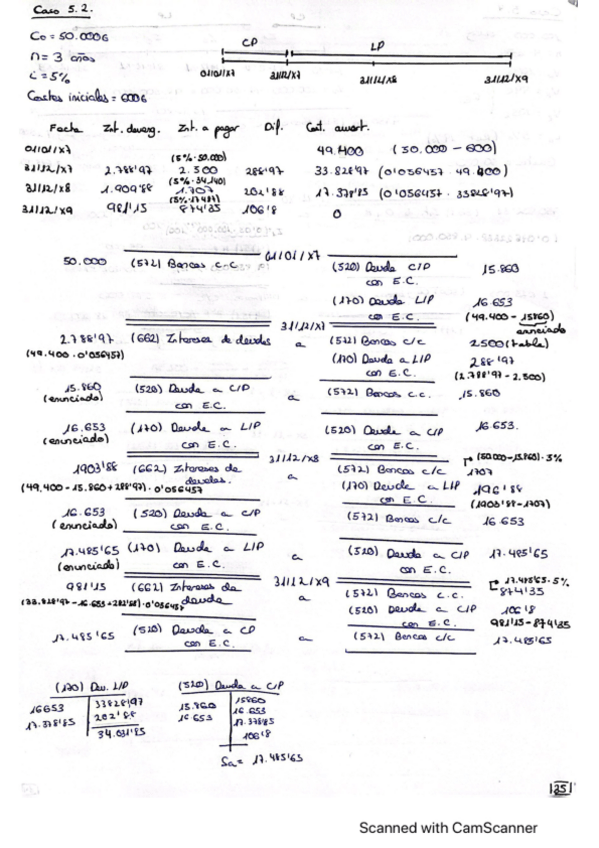 Caso 5.2.
C₀ = 50.000€
n = 3 años
i = 5%
Costes iniciales = 600€
CP LP
01/01/X7 31/12/X7 31/12/X8 31/12/X9
Fecha Int. deveng. Int. a pagar Dif. Cost. amort.
01/01/X7 49.400 (50.000 - 600)
(5%·50.000)
31/12/X7 2.788'97 2.500 288'97 33.828'97 (0'056457·49.400)
(5%·34.140)
31/12/X8 1.909'88 1.707 202'88 17.378'85 (0'056457·33828'97)
(5%·17487)
31/12/X9 981'15 874'35 106'8 0
01/01/X7
50.000 (572) Bancos c.c. (520) Deuda C/P 15.860
con E.C.
(170) Deuda L/P 16.653
con E.C. (49.400 - 15860)
enunciado
31/12/X7
2.788'97 (662) Intereses de deudas a (572) Bancos c/c 2500 (tabla)
(49.400·0'056457) (170) Deuda a L/P 288'97
con E.C. (2.788'97 - 2.500)
15.860 (520) Deuda a C/P a (572) Bancos c.c. 15.860
(enunciado) con E.C.
16.653 (170) Deuda a L/P (520) Deuda a C/P 16.653.
(enunciado) con E.C. con E.C.
31/12/X8 (50.000-15.860)·5%
1903'88 (662) Intereses de a (572) Bancos c/c 1707
deudas. (170) Deuda a L/P 196'88
(49.400 - 15.860 + 288'97)·0'056457 con E.C. (1903'88 - 1707)
16.653 (520) Deuda a C/P (572) Bancos c/c 16.653
(enunciado) con E.C.
17.485'65 (170) Deuda a L/P a (520) Deuda a C/P 17.485'65
(enunciado) con E.C. con E.C.
31/12/X9 17.485'65·5%
981'15 (662) Intereses de a (572) Bancos c.c. 874'35
deuda (520) Deuda a C/P 106'8
(33.828'97 - 16.653 + 202'88)·0'056457 con E.C. 981'15 - 874'35
17.485'65 (520) Deuda a CP a (572) Bancos c/c 17.485'65
con E.C.
(170) Deu. L/P (520) Deuda a C/P
16653 33828'97 15.860 15860
17.378'85 202'88 16.653 16.653
34.031'85 17.378'85
106'8
Sa = 17.485'65
135
Scanned with CamScanner